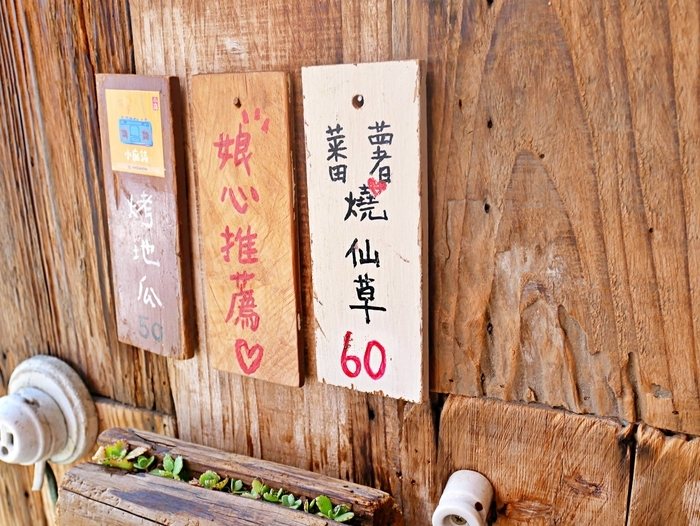 烤地瓜
50
娘心推薦
薯菜田
燒仙草
60